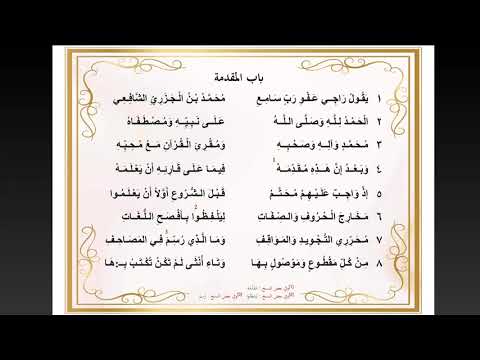 باب المقدمة
١ يَقُولُ رَاجِي عَفْوِ رَبٍّ سَامِعِ مُحَمَّدُ بْنُ الْجَزَرِيِّ الشَّافِعِي
٢ الْحَمْدُ لِلَّهِ وَصَلَّى اللَّهُ عَلَى نَبِيِّهِ وَمُصْطَفَاهُ
٣ مُحَمَّدٍ وَآلِهِ وَصَحْبِهِ وَمُقْرِئِ الْقُرْآنِ مَعْ مُحِبِّهِ
٤ وَبَعْدُ إِنَّ هَذِهِ مُقَدِّمَهْ فِيمَا عَلَى قَارِئِهِ أَنْ يَعْلَمَهْ
٥ إِذْ وَاجِبٌ عَلَيْهِمُ مُحَتَّمُ قَبْلَ الشُّرُوعِ أَوَّلًا أَنْ يَعْلَمُوا
٦ مَخَارِجَ الْحُرُوفِ وَالصِّفَاتِ لِيَلْفِظُوا بِأَفْصَحِ اللُّغَاتِ
٧ مُحَرِّرِي التَّجْوِيدِ وَالْمَوَاقِفِ وَمَا الَّذِي رُسِمَ فِي الْمَصَاحِفِ
٨ مِنْ كُلِّ مَقْطُوعٍ وَمَوْصُولٍ بِهَا وَتَاءِ أُنْثَى لَمْ تَكُنْ تُكْتَبْ بِـ: هَا